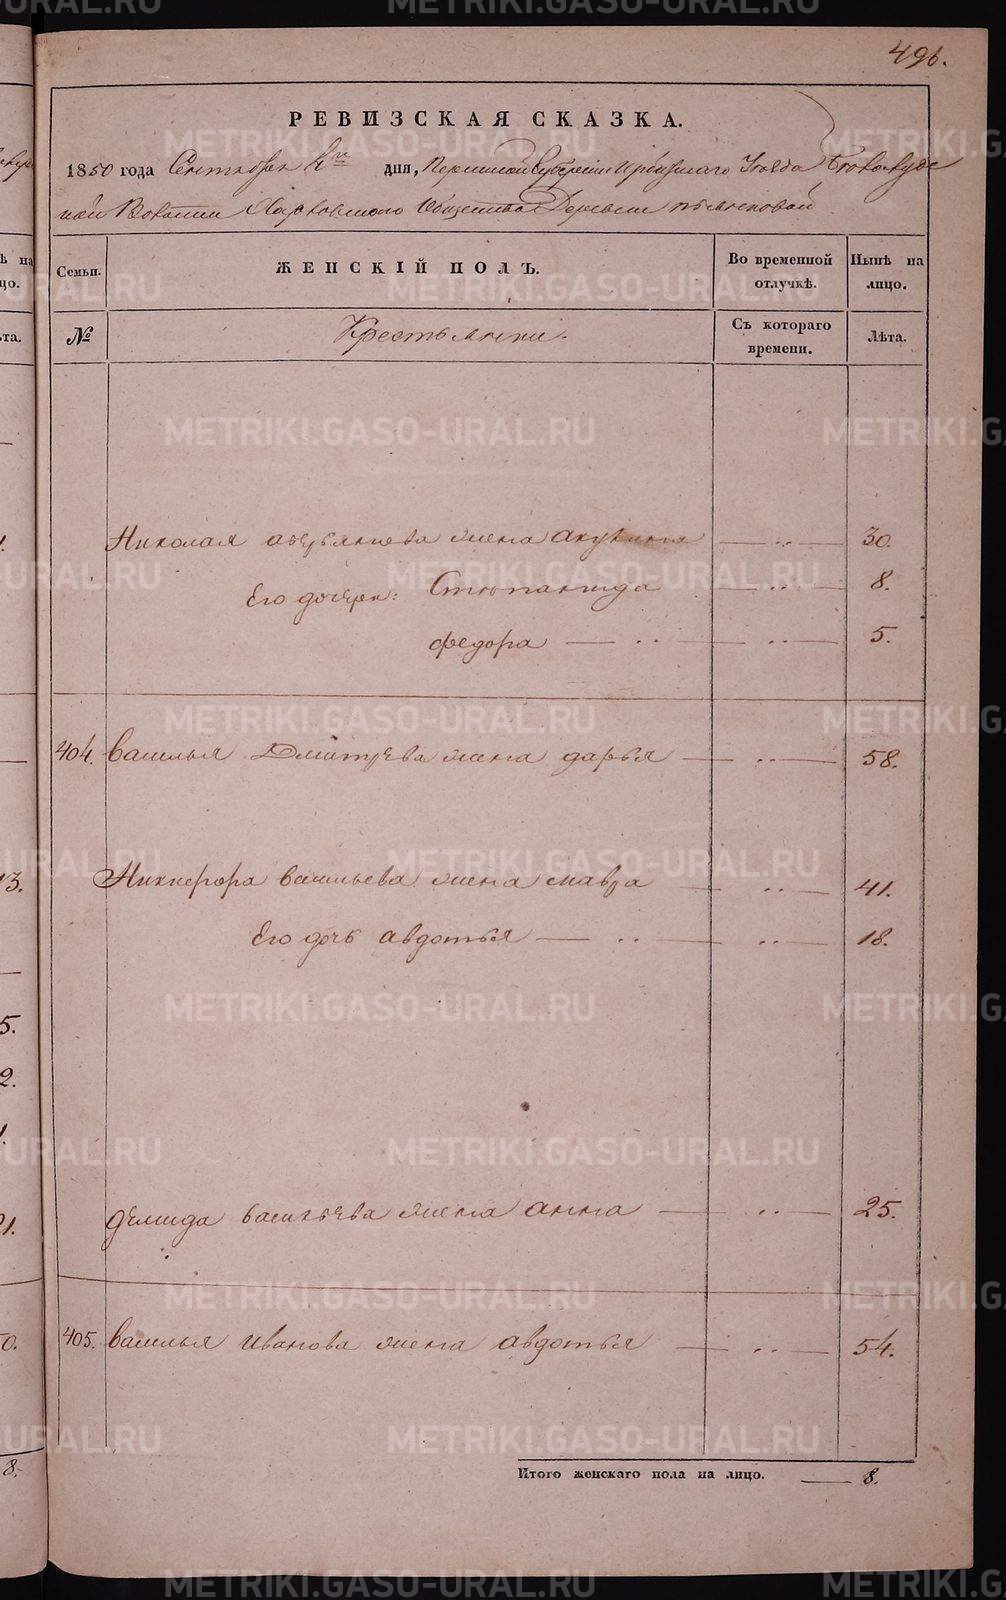 496.
РЕВИЗСКАЯ СКАЗКА.
1850 года Сентября дня, Пермской Губернии Ирбитскаго Уезда Белослуд
ской Волости Харловскаго Общества Деревни
Семьи. ЖЕНСКІЙ ПОЛЪ. Во временной отлучкѣ. Нынѣ на лицо.
№ Крестьянки. Съ котораго времени. Лѣта.
Николая Аверьянова жена Акулина — ·· — 30.
Его дочери: Стюпанида — ·· — 8.
Федора — ·· — ·· — 5.
404. Василья Дмитрева жена Дарья — ·· — 58.
Никифора Васильева жена Мавра — ·· — 41.
Его дочь Авдотья — ·· — ·· — 18.
Демида Васильева жена Анна — ·· — 25.
405. Василья Иванова жена Авдотья — ·· — 54.
Итого женскаго пола на лицо. — 8.
METRIKI.GASO-URAL.RU